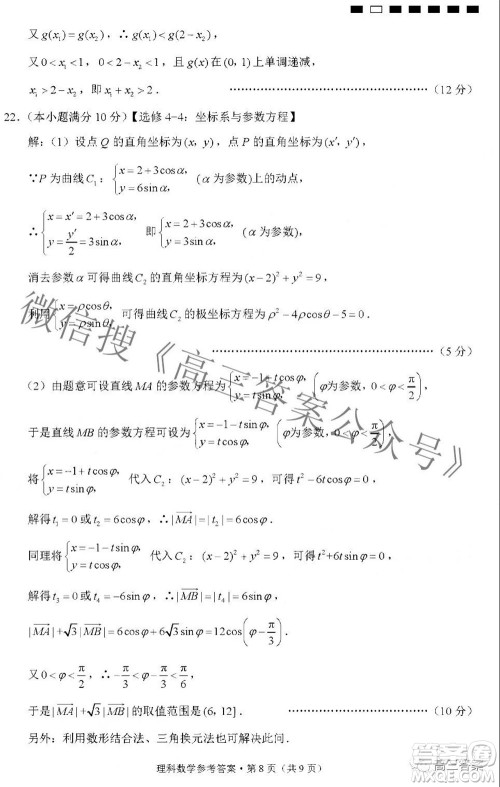 又 g(x₁)=g(x₂)，∴g(x₁)<g(2−x₂)，
又0<x₁<1，0<2−x₂<1，且g(x)在(0, 1)上单调递减，
x₁>2−x₂，即x₁+x₂>2．⋯⋯⋯⋯⋯⋯⋯⋯（12 分）
22．（本小题满分 10 分）【选修 4−4：坐标系与参数方程】
解：（1）设点 Q 的直角坐标为(x, y)，点 P 的直角坐标为(x′, y′)，
∵P 为曲线 C₁：{x=2+3cosα, y=6sinα, (α为参数)上的动点，
∴{x=x′=2+3cosα, y=y′/2=3sinα, 即{x=2+3cosα, y=3sinα, (α为参数)．
消去参数α可得曲线C₂的直角坐标方程为(x−2)²+y²=9，
利用{x=ρcosθ, y=ρsinθ, 可得曲线C₂的极坐标方程为ρ²−4ρcosθ−5=0．
⋯⋯⋯⋯⋯⋯⋯⋯（5 分）
（2）由题意可设直线MA的参数方程为{x=−1+tcosφ, y=tsinφ (φ为参数，0<φ<π/2)，
于是直线MB的参数方程可设为{x=−1−tsinφ, y=tcosφ (φ为参数，0<φ<π/2)，
将{x=−1+tcosφ, y=tsinφ, 代入C₂：(x−2)²+y²=9，可得t²−6tcosφ=0，
解得t₁=0或t₂=6cosφ，∴|MA|=|t₂|=6cosφ．
同理将{x=−1−tsinφ, y=tcosφ, 代入C₂：(x−2)²+y²=9，可得t²+6tsinφ=0，
解得t₃=0或t₄=−6sinφ，∴|MB|=|t₄|=6sinφ，
|MA|+√3|MB|=6cosφ+6√3sinφ=12cos(φ−π/3)．
又0<φ<π/2，∴−π/3<φ−π/3<π/6，
于是|MA|+√3|MB|的取值范围是(6, 12]．⋯⋯⋯⋯⋯⋯⋯⋯（10 分）
另外：利用数形结合法、三角换元法也可解决此问．
理科数学参考答案·第 8 页（共 9 页）
微信搜《高三答案公众号》
高三答案